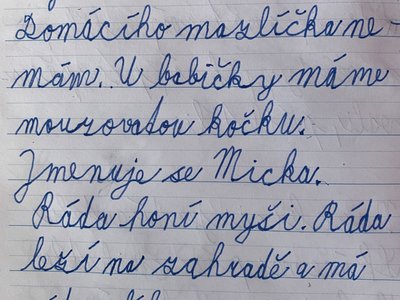 Domácího mazlíčka ne-
mám. U babičky máme
mourovatou kočku.
Jmenuje se Micka.
Ráda honí myši. Ráda
leží na zahradě a má